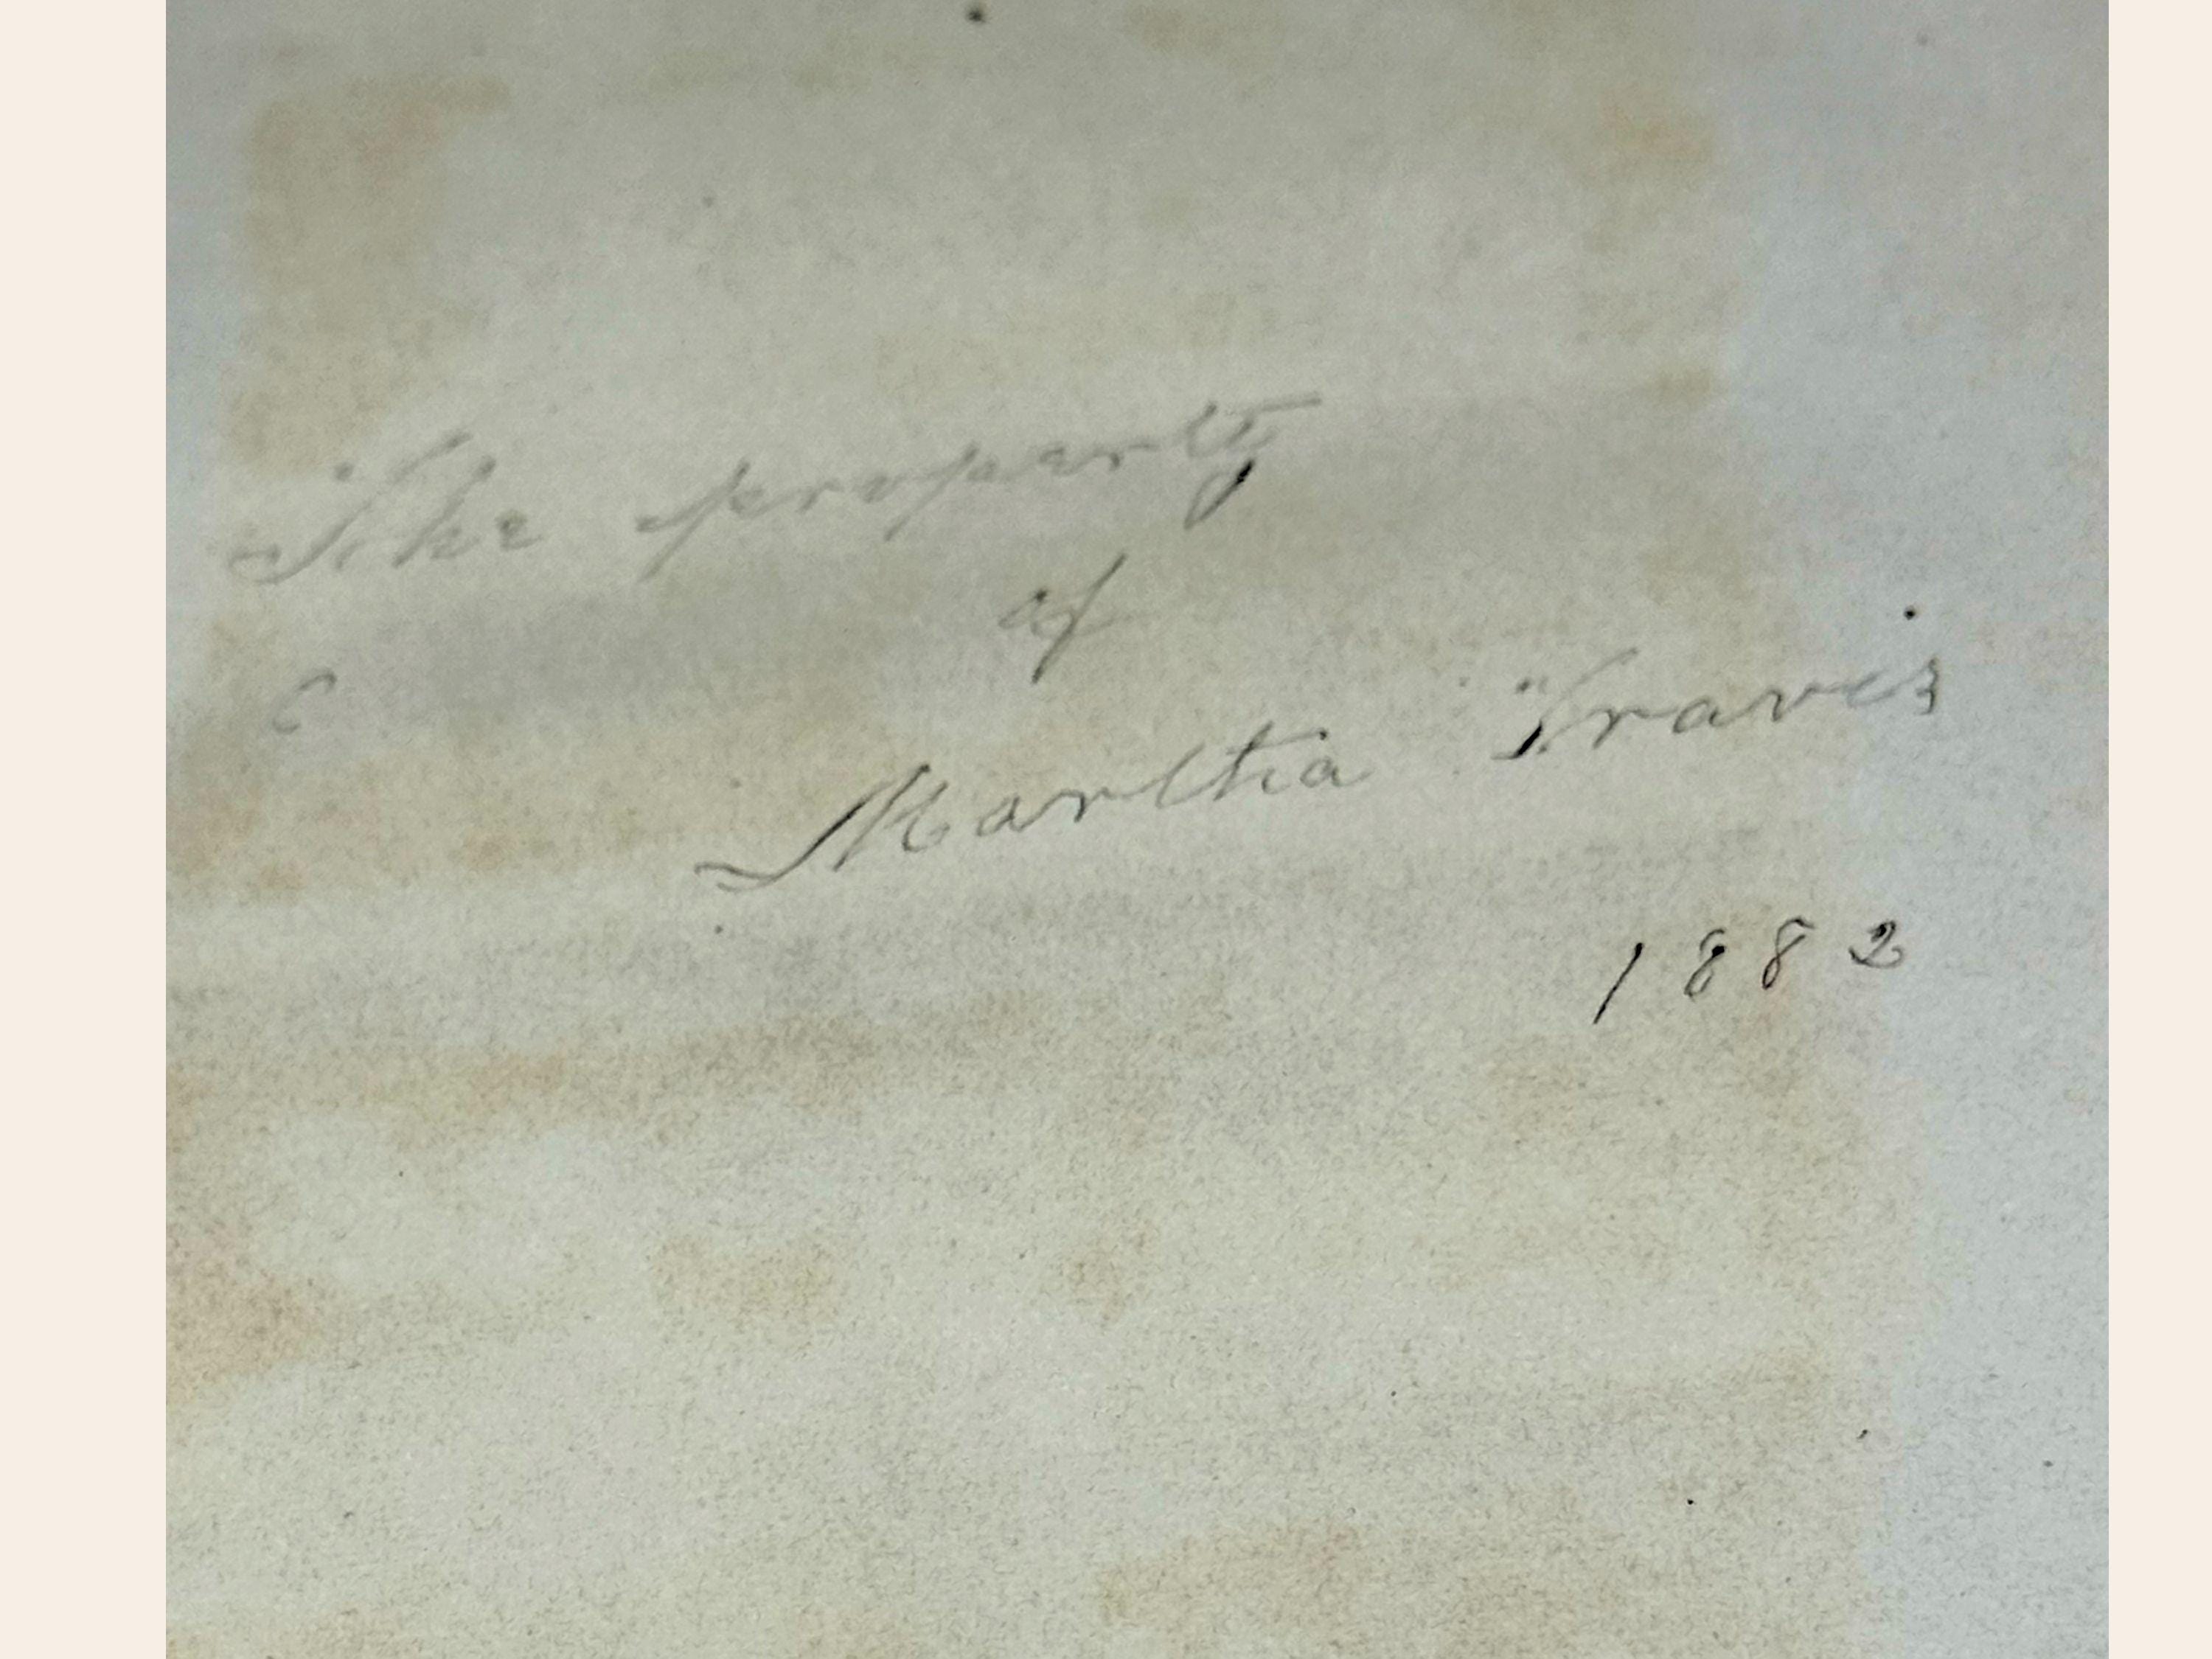 The property
of
Martha Travis
1882